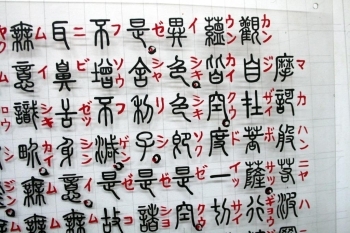 摩訶般若波
マカハンニャハ
觀自在菩薩行
カンジザイボサツギョウ
蘊皆空度一切
ウンカイクウドイッサイ
異色色即是空
イシキシキソクゼクウ
是舍利子是諸
ゼシャリシゼショ
不增不減是故
フゾウフゲンゼコ
耳鼻舌身意無
ニビゼッシンイム
無意識界無無
ムイシキカイムム